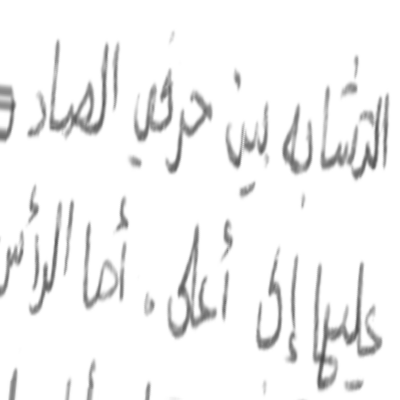 التشابه بين حرفي الصاد و
عليها إلى أعلى . أما الرأس